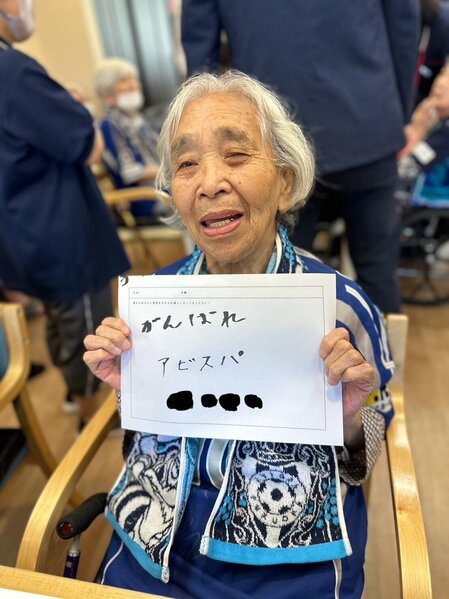 がんばれ
アビスパ